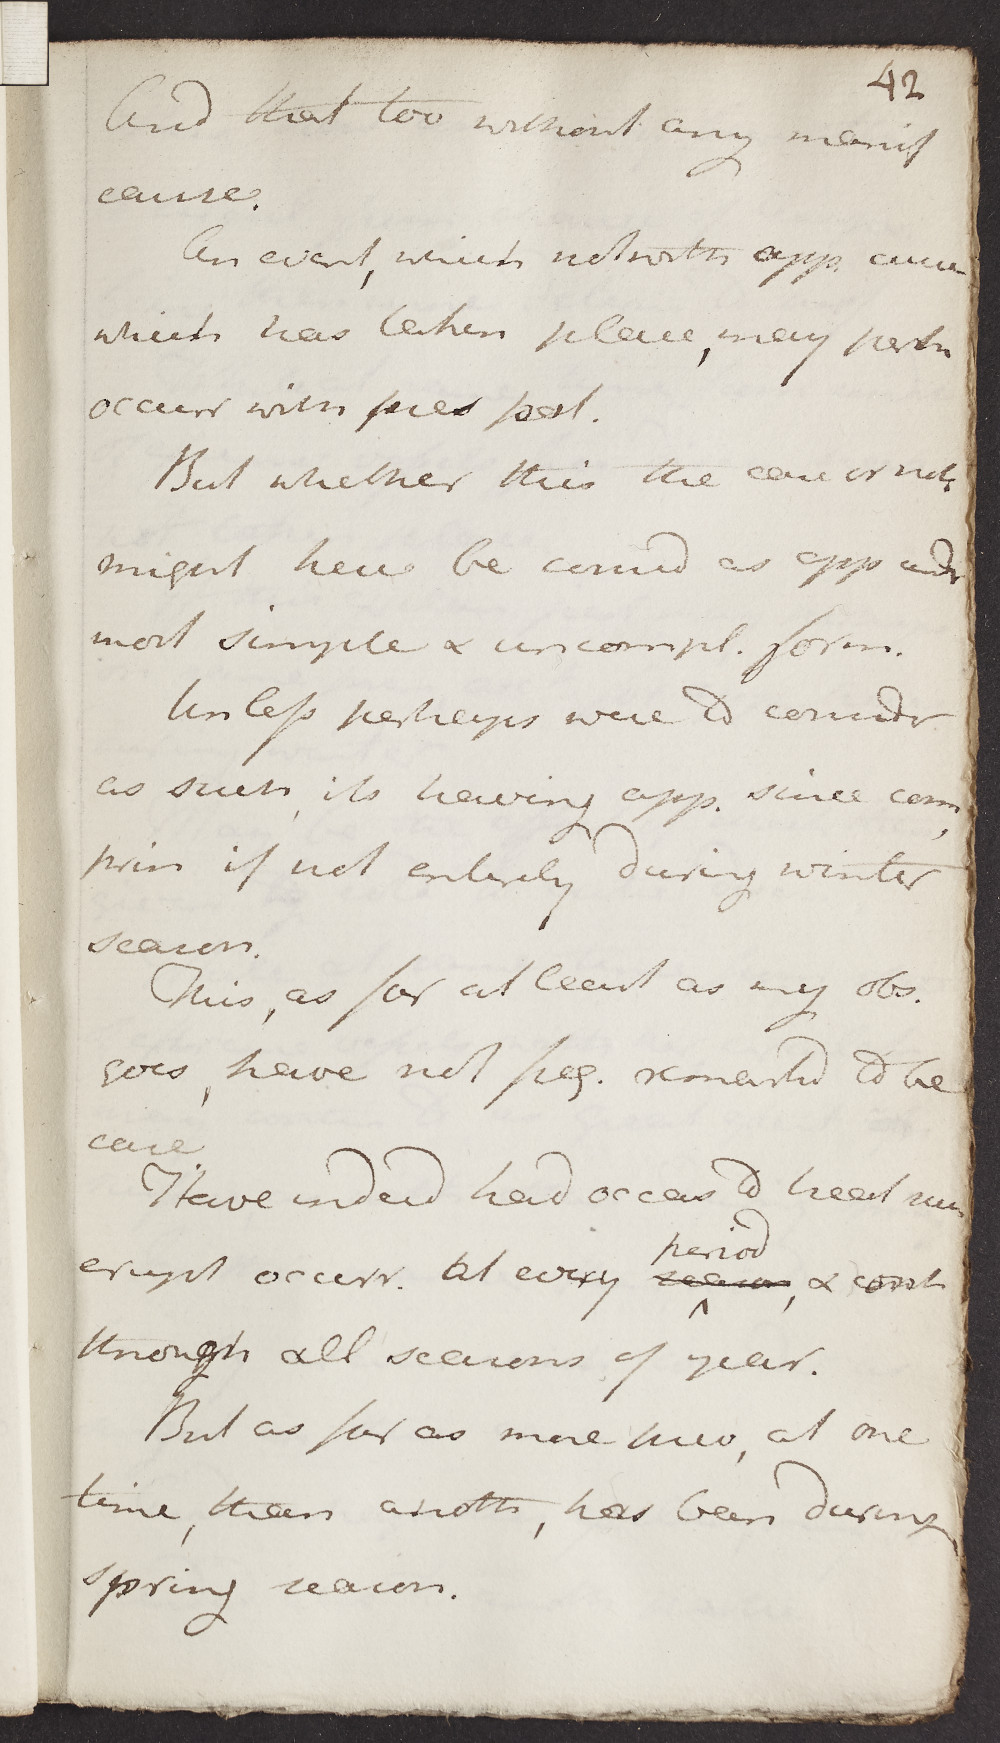 42
And that too without any manif
cause.
An event, which notwith app. amen
which has taken place, may perh
occurr with pres pat.
But whether this the case or not,
might here be consid as app undr
most simple & uncompl. form.
Unless perhaps were to considr
as such, its having app. since comm,
prin if not entirely during winter
season.
This, as far at least as my obs.
goes, have not freq. remarkd to be
case
Have indeed had occas to treat
erupt occurr. at every period season, & cont
through all seasons of year.
But as far as more freq, at one
time, than anoth, has been during
spring season.